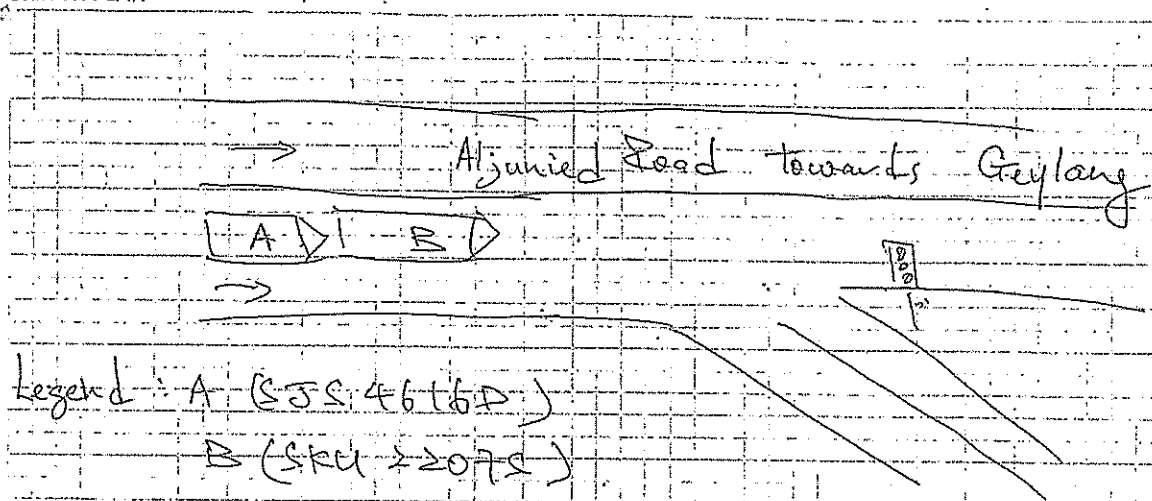 Aljunied Road towards Geylang
A B
Legend : A (SJS 4616D)
B (SKU 2207S)